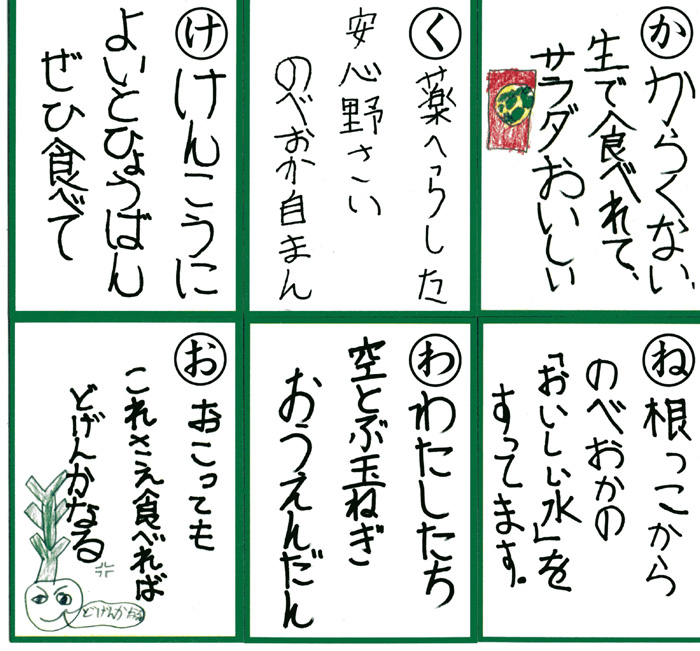 か
からくない、
生で食べれて、
サラダおいしい
く
薬へらした
安心野さい
のべおか自まん
け
けんこうに
よいとひょうばん
ぜひ食べて
ね
根っこから
のべおかの
「おいしい水」を
すってます。
わ
わたしたち
空とぶ玉ねぎ
おうえんだん
お
おこっても
これさえ食べれば
どげんかなる
どげんかなる